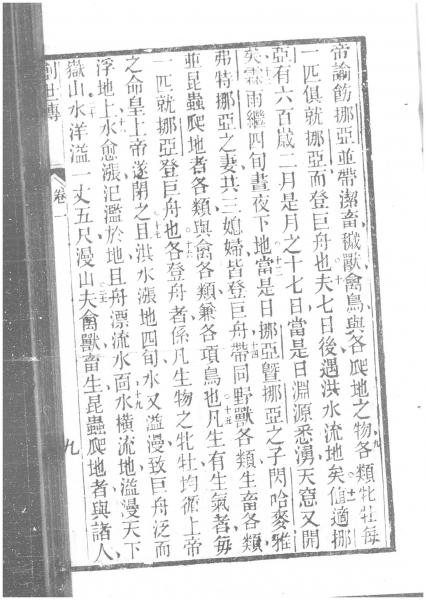 帝諭飭挪亞並帶潔畜穢獸禽鳥與各爬地之物各類牝牡每
一匹俱就挪亞而登巨舟也夫七日後遇洪水流地矣值適挪
亞有六百歲二月是月之十七日當是日淵源悉湧天窓又開
矣霖雨繼四旬晝夜下地當是日挪亞曁挪亞之子閃哈麥雅
弗特挪亞之妻共三媳婦皆登巨舟帶同野獸各類生畜各類
並昆蟲爬地者各類與禽各類兼各項鳥也凡生有生氣者每
一匹就挪亞登巨舟也各登舟者係凡生物之牝牡均循上帝
之命皇上帝遂閉之且洪水漲地四旬水又溢漫致巨舟泛而
浮地上水愈漲氾濫於地且舟漂流水面水橫流地溢漫天下
嶽山水洋溢一丈五尺漫山夫禽獸畜生昆蟲爬地者與諸人
創世傳 卷一 九